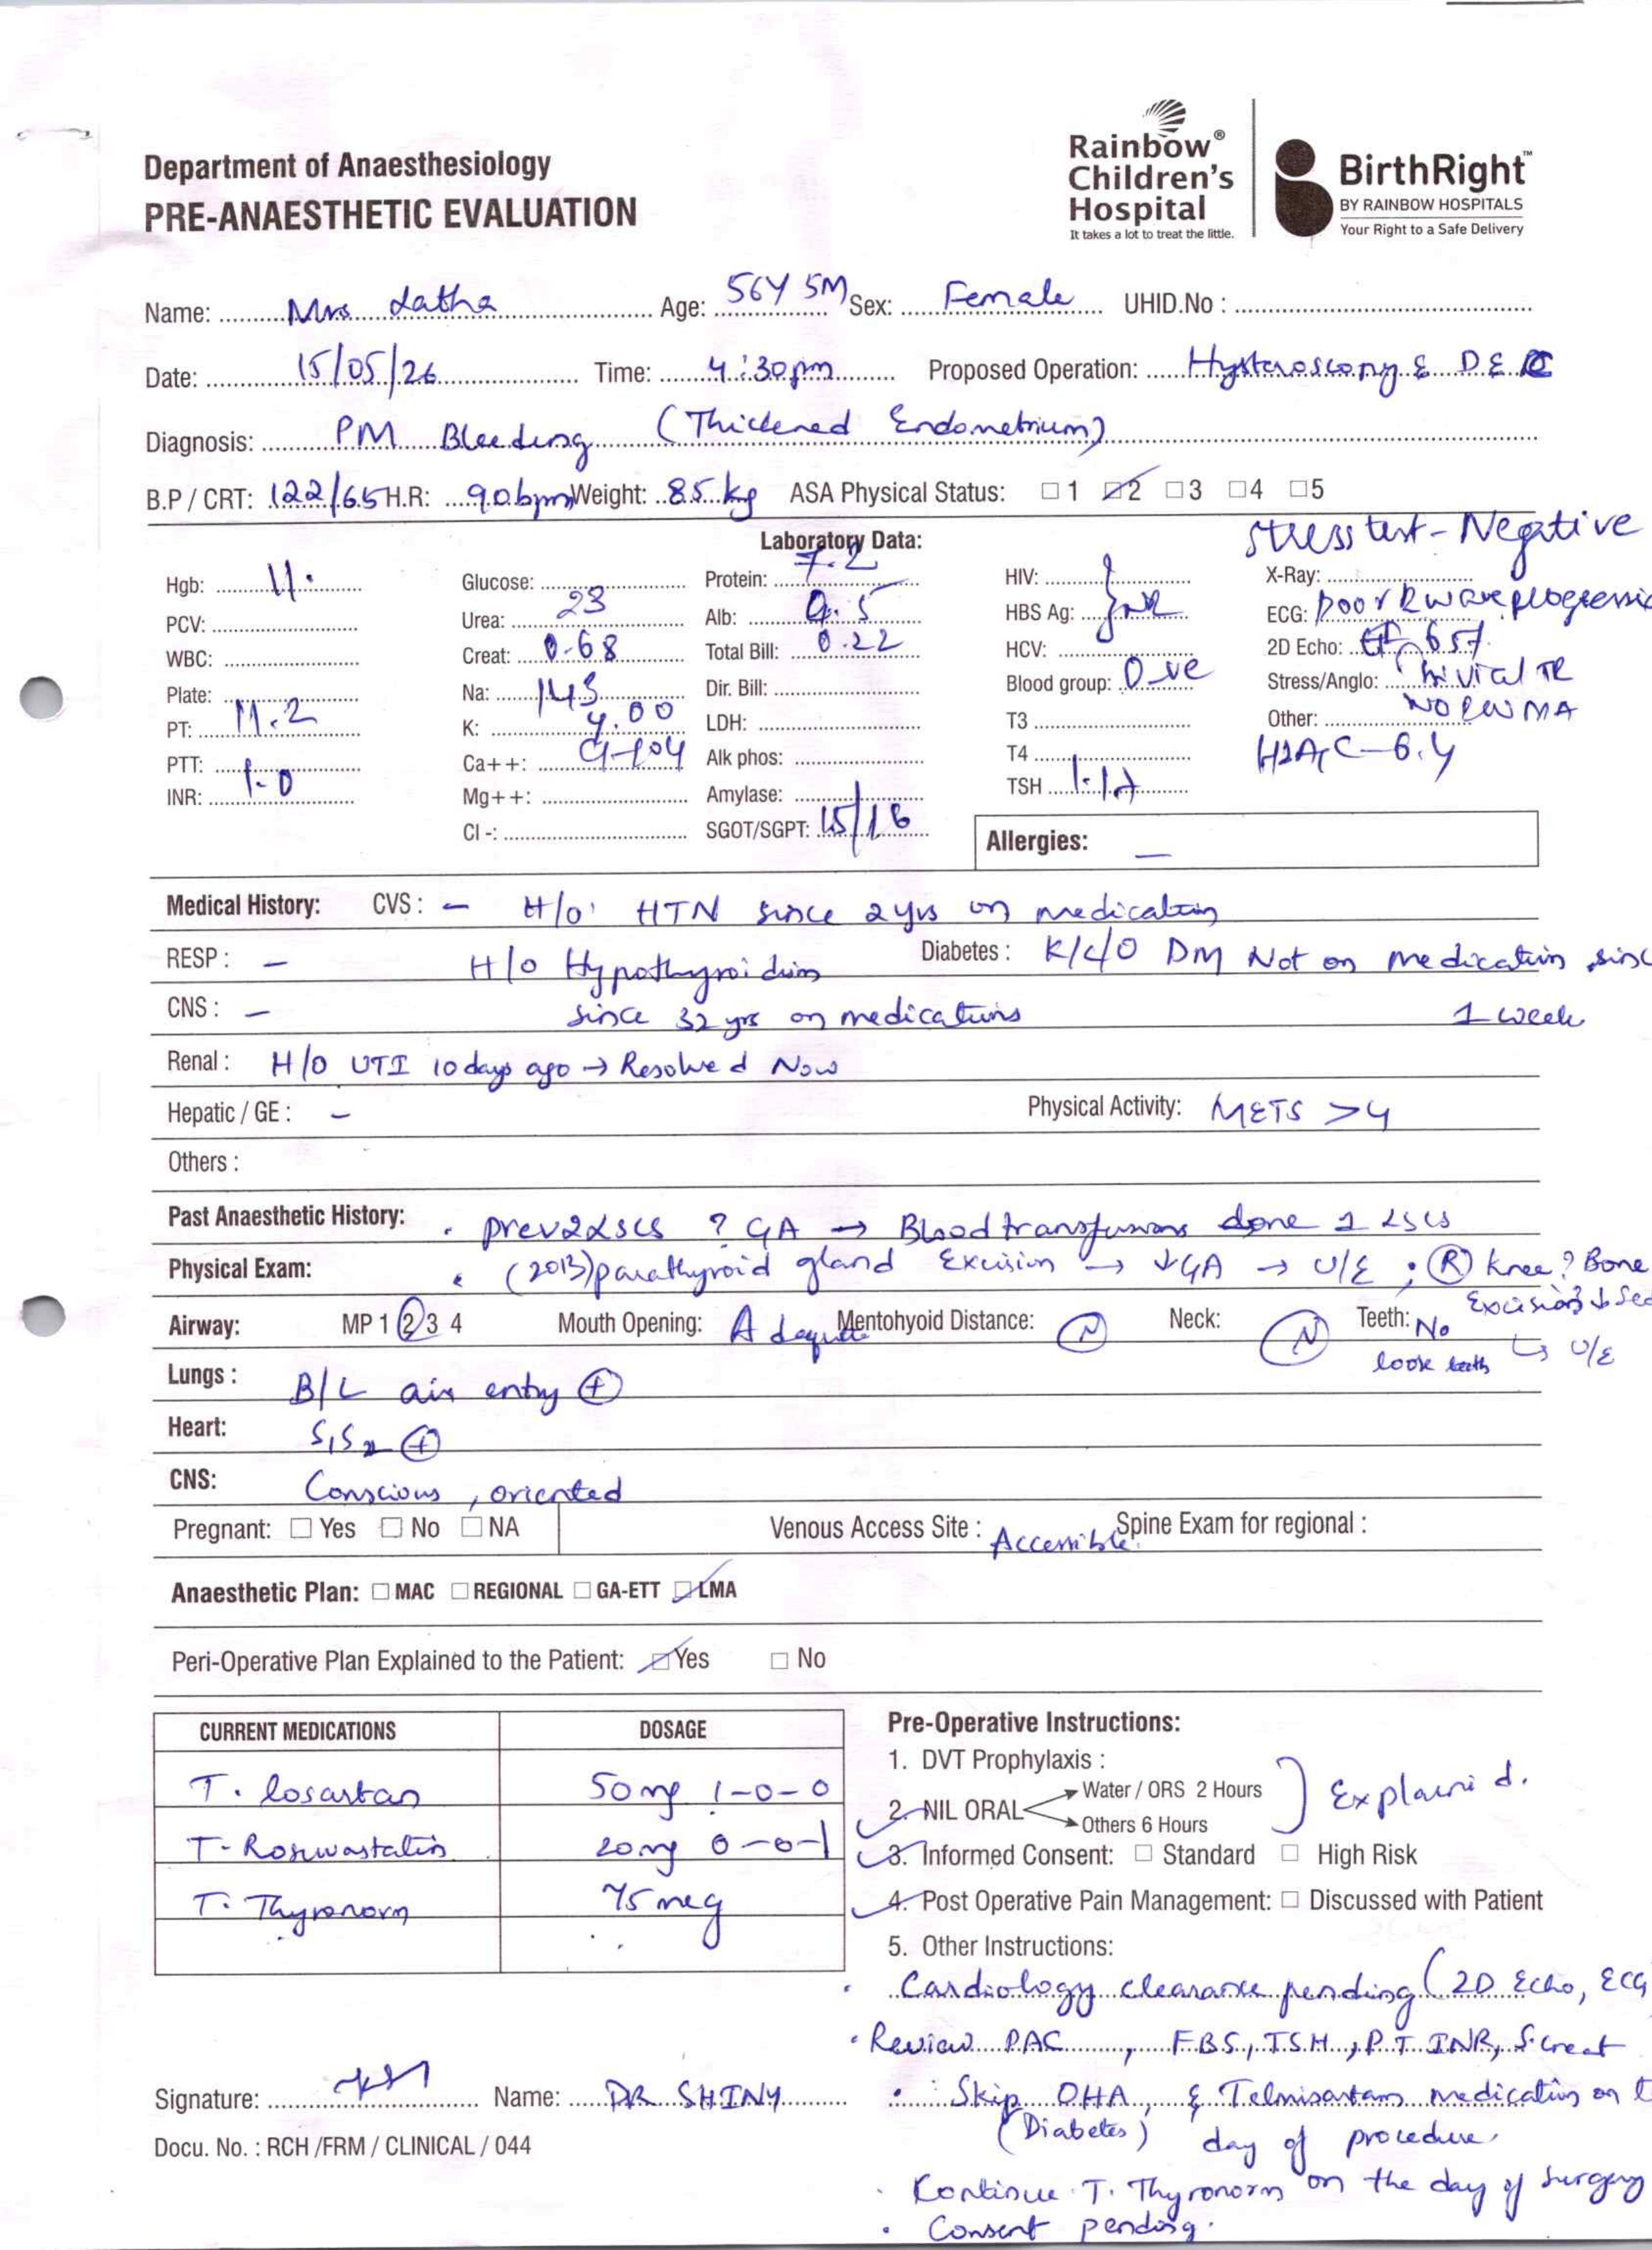 Rainbow®
Children's
Hospital
It takes a lot to treat the little.
BirthRight™
BY RAINBOW HOSPITALS
Your Right to a Safe Delivery
Department of Anaesthesiology
PRE-ANAESTHETIC EVALUATION
Name: Mrs Latha Age: 56Y 5M Sex: Female UHID.No :
Date: 15/05/26 Time: 4:30pm Proposed Operation: Hysteroscopy & D & C
Diagnosis: PM Bleeding (Thickened Endometrium)
B.P / CRT: 122/65 H.R: 90bpm Weight: 85 kg ASA Physical Status: 1 2 3 4 5
Laboratory Data: Stress test - Negative
Hgb: 11. Glucose: Protein: 7.2 HIV: X-Ray:
PCV: Urea: 23 Alb: HBS Ag: NR ECG: poor R wave progressio
WBC: Creat: 0.68 Total Bill: 0.22 HCV: 2D Echo: EF
Plate: Na: 143 Dir. Bill: Blood group: O -ve Stress/Anglo: Trivial TR
PT: 11.2 K: 4.00 LDH: T3 Other: NO RWMA
PTT: Ca++: Alk phos: T4 6.4
INR: 1.0 Mg++: Amylase: TSH
Cl -: SGOT/SGPT: 15/16
Allergies: –
Medical History: CVS : – H/o HTN since 2yrs on medication
RESP : – H/o Hypothyroidism Diabetes : K/c/o DM Not on medication sinc
CNS : – since 32 yrs on medications 1 week
Renal : H/o UTI 10 days ago → Resolved Now
Hepatic / GE : – Physical Activity: METS >4
Others :
Past Anaesthetic History: • prev 2 LSCS ? GA → Blood transfusions done 1 LSCS
Physical Exam: • (2013) parathyroid gland Excision → ↓GA → U/E • (R) knee ? Bone
Excision ↓ Sed
Airway: MP 1 2 3 4 Mouth Opening: Adequate Mentohyoid Distance: N Neck: N Teeth: No
loose teeth ↳ U/E
Lungs : B/L air entry +
Heart: S1S2 +
CNS: Conscious, oriented
Pregnant: Yes No NA Venous Access Site : Accessible Spine Exam for regional :
Anaesthetic Plan: MAC REGIONAL GA-ETT LMA
Peri-Operative Plan Explained to the Patient: Yes No
CURRENT MEDICATIONS DOSAGE
T. losartan 50mg 1-0-0
T- Rosuvastatin 20mg 0-0-1
T. Thyronorm 75 mcg
Pre-Operative Instructions:
1. DVT Prophylaxis :
2. NIL ORAL Water / ORS 2 Hours
Others 6 Hours
Explained.
3. Informed Consent: Standard High Risk
4. Post Operative Pain Management: Discussed with Patient
5. Other Instructions:
• Cardiology clearance pending (2D Echo, ECG
• Review PAC , FBS, TSH, PT INR, S.creat
• Skip OHA, & Telmisartan medication on t
(Diabetes) day of procedure.
• Continue T. Thyronorm on the day of surgery
• Consent pending.
Signature: Name: DR SHINY
Docu. No. : RCH /FRM / CLINICAL / 044